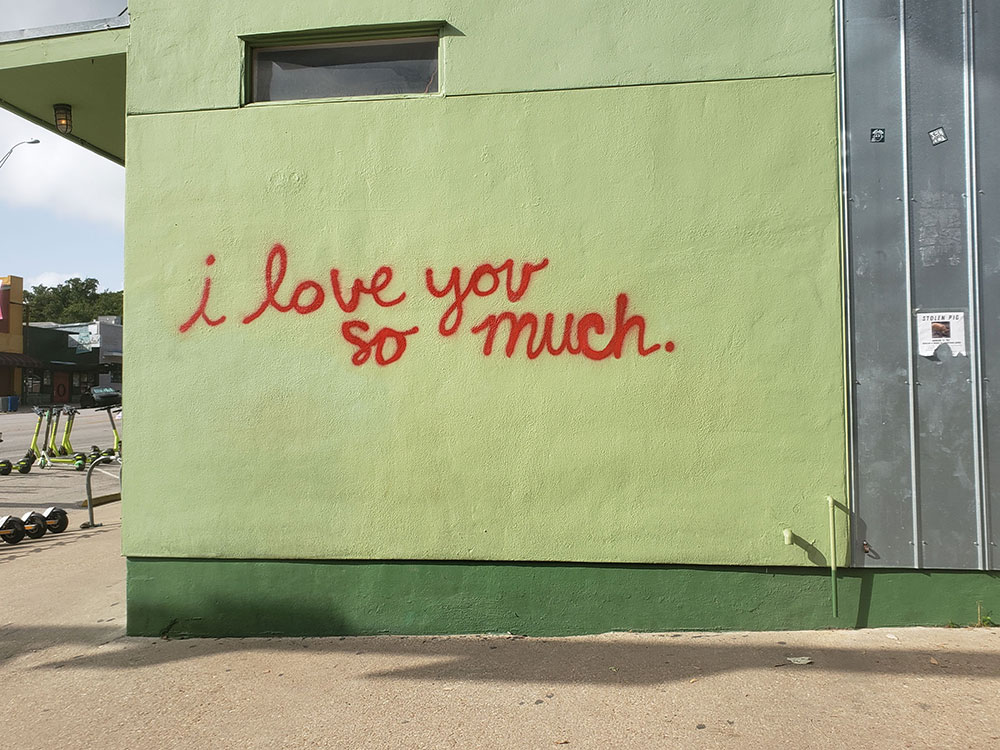 i love you
so much.
STOLEN PIG